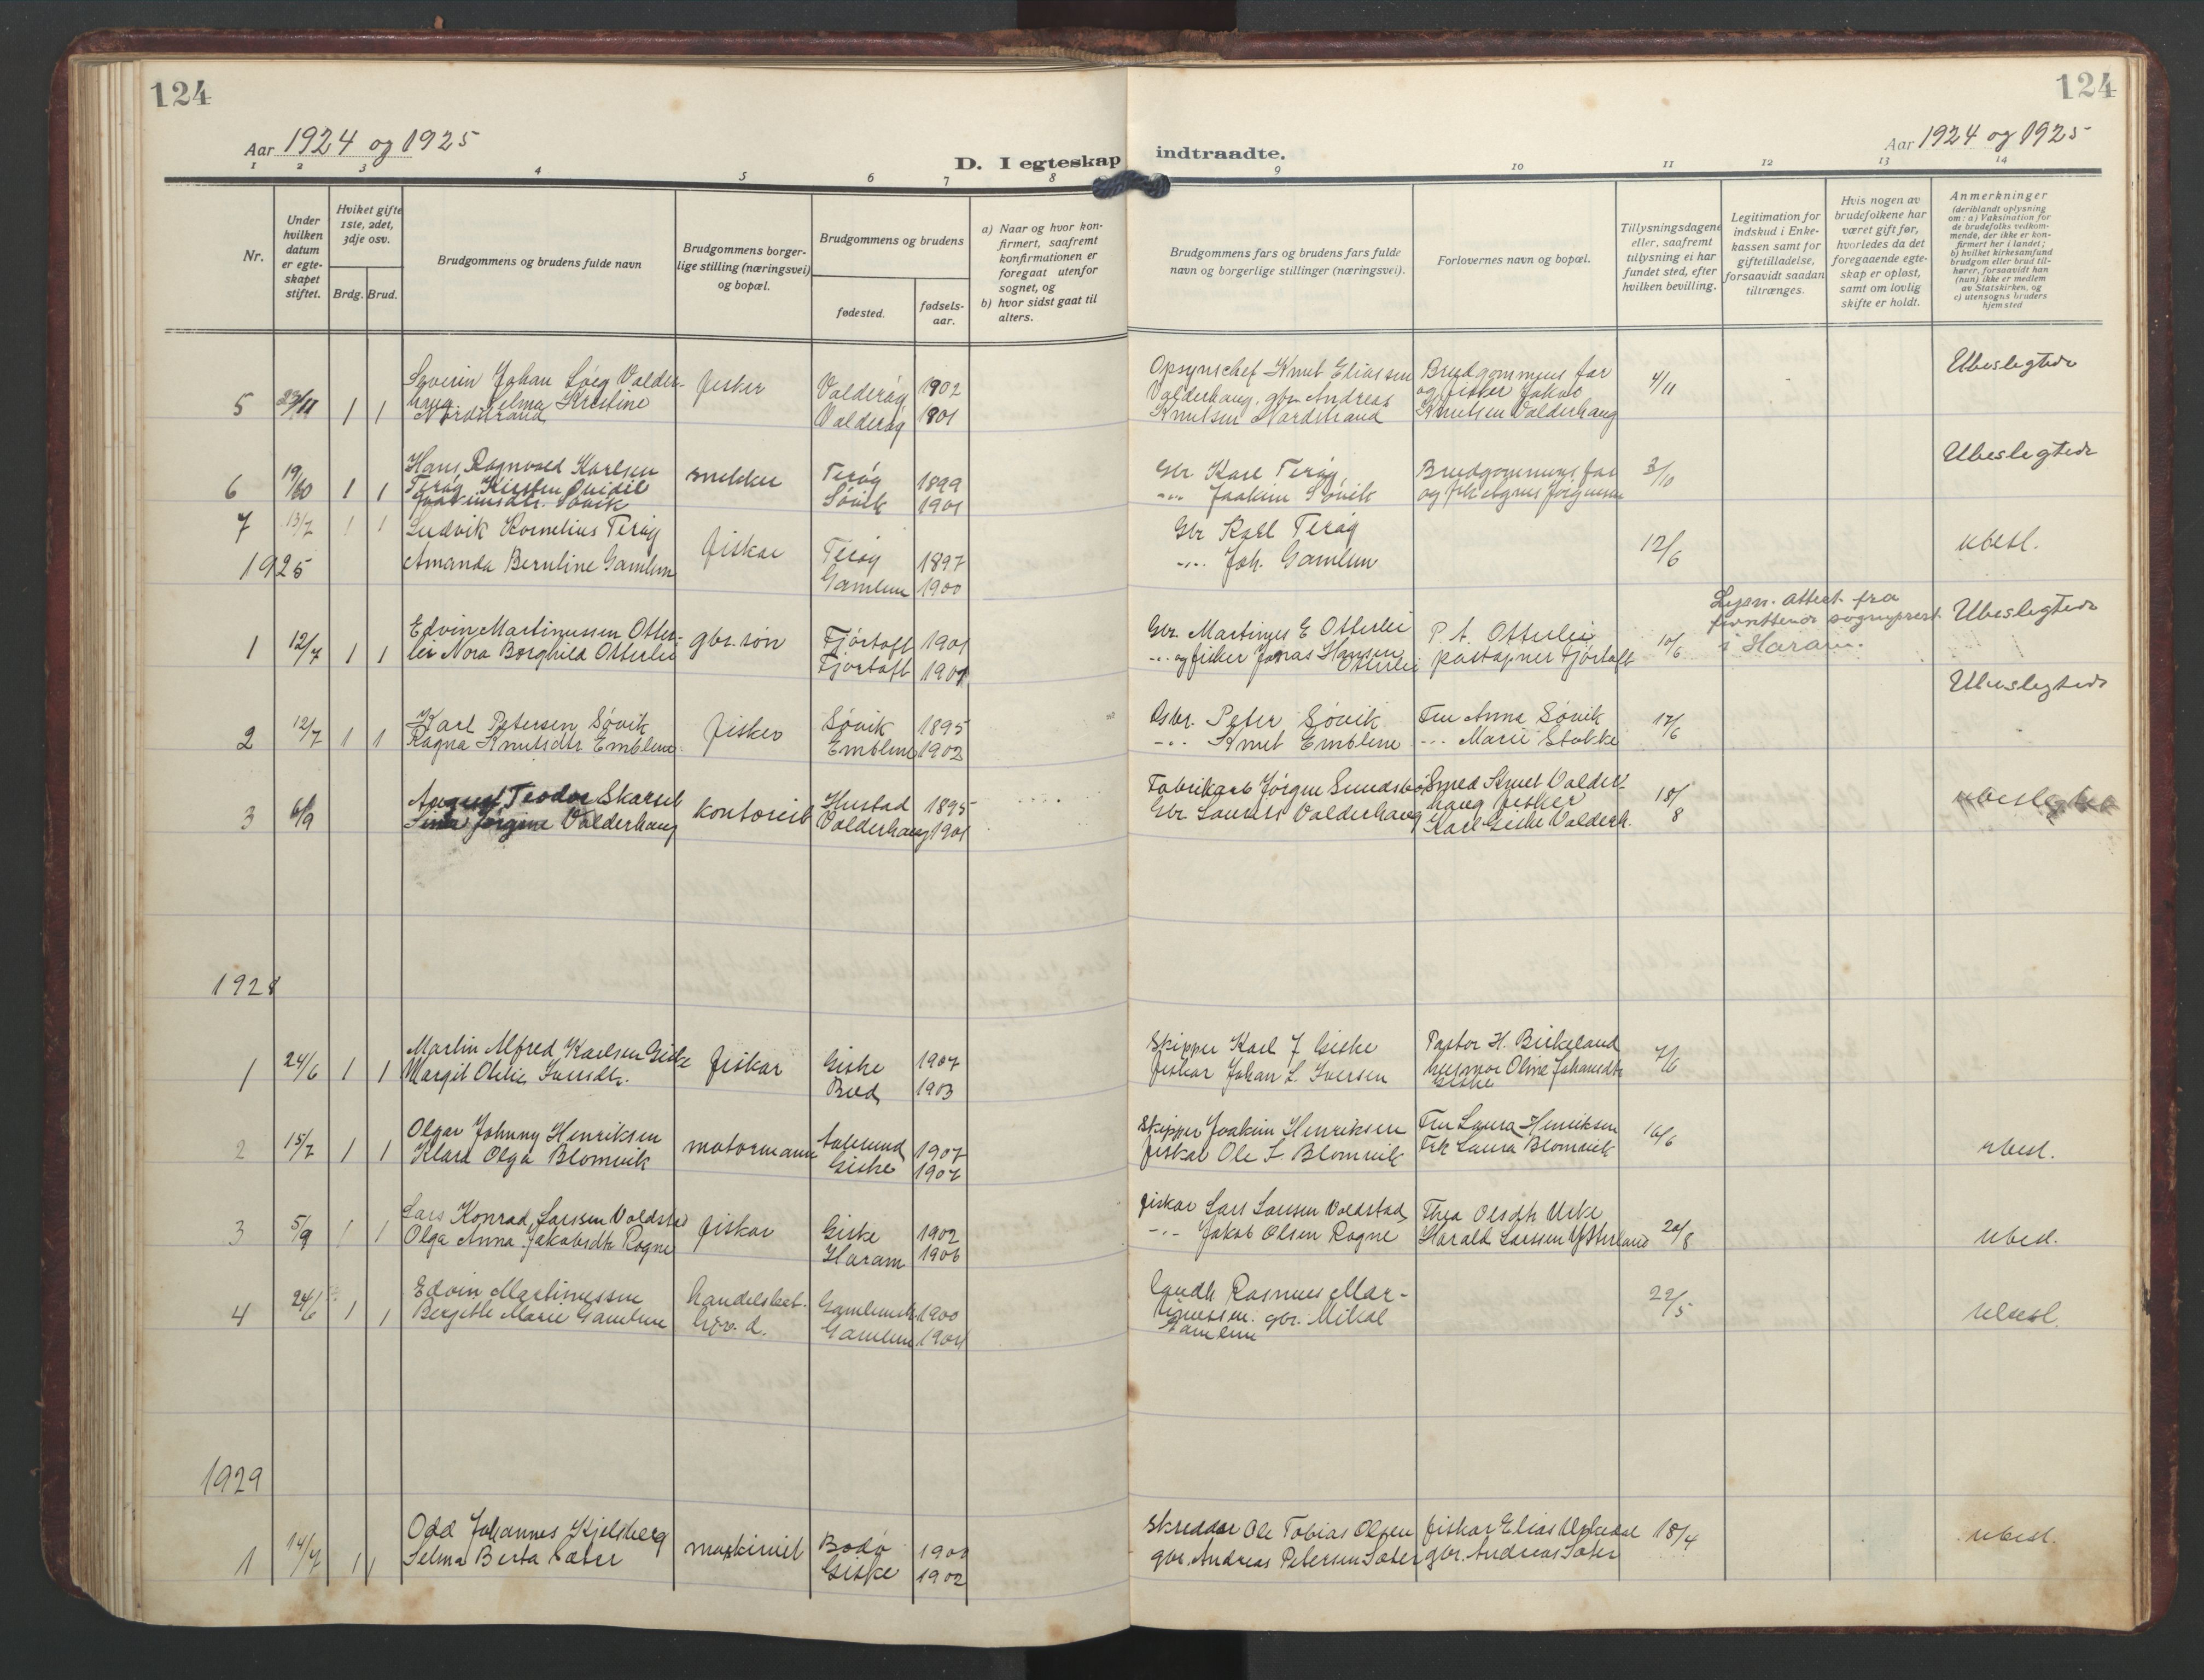 124
124
Aar 1924 og 1925
Aar 1924 og 1925
D. I egteskap indtraadte.
1 2 3 4 5 6 7 8 9 10 11 12 13 14
Nr.
Under
hvilken
datum
er egte-
skapet
stiftet.
Hvilket gifte
1ste, 2det,
3dje osv.
Brdg. Brud.
Brudgommens og brudens fulde navn
Brudgommens borger-
lige stilling (næringsvei)
og bopæl.
Brudgommens og brudens
fødested.
fødsels-
aar.
a) Naar og hvor kon-
firmert, saafremt
konfirmationen er
foregaat utenfor
sognet, og
b) hvor sidst gaat til
alters.
Brudgommens fars og brudens fars fulde
navn og borgerlige stillinger (næringsvei).
Forlovernes navn og bopæl.
Tillysningsdagene
eller, saafremt
tillysning ei har
fundet sted, efter
hvilken bevilling.
Legitimation for
indskud i Enke-
kassen samt for
giftetilladelse,
forsaavidt saadan
tiltrænges.
Hvis nogen av
brudefolkene har
været gift før,
hvorledes da det
foregaaende egte-
skap er opløst,
samt om lovlig
skifte er holdt.
Anmerkninger
(deriblandt oplysning
om: a) Vaksination for
de brudefolks vedkom-
mende, der ikke er kon-
firmert her i landet;
b) hvilket kirkesamfund
brudgom eller brud til-
hører, forsaavidt han
(hun) ikke er medlem
av Statskirken, og
c) utensogns bruders
hjemsted
Severin Johan Løeg Valder- fisker Valderøy 1902 Opsynschef Knut Eliassen Brudgommens far 4/11 Ubeslegtede
5 23/11 1 1 haug. Selma Kristine Valderøy 1901 Valderhaug. gbr. Andreas og fisker Jakob
Nordstrand Knutsen Nordstrand Knutsen Valderhaug
Hans Ragnvald Karlsen snekker Terøy 1899 Gbr Karl Terøy Brudgommens far 3/10 Ubeslegtede
6 19/10 1 1 Terøy Søvik 1901 -"- Joakim Søvik og
Joakimsdtr. Søvik
7 13/7 1 1 Ludvik Kornelius Terøy fiskar Terøy 1897 Gbr Karl Terøy 12/6 ubesl.
1925
Amanda Bernline Gamlem Gamlem 1900 -"- Joh. Gamlem
Lysn. attest fra
Edvin Martinussen Otter- gbr. søn Fjørtoft 1901 Gbr. Martinus E Otterlei P. A. Otterlei 10/6 sogneprest Ubeslegtede
1 12/7 1 1 lei Nora Borghild Otterlei Fjørtoft 1901 -"- og fisker Jonas Hansen Otterlei postopner Fjørtoft i Haram.
Karl Petersen Søvik fisker Søvik 1895 Gbr. Peter Søvik Fru Anna Søvik 17/6 Ubeslegtede
2 12/7 1 1 Ragna Knutsdtr Emblem Emblem 1902 -"- Knut Emblem -"- Marie Stokke
August Teodor Skarset kontorist Hustad 1895 Fabrikarb Jørgen Sundsbø Smed Knut Valder- 18/8 ubeslegtet
3 6/9 Jørgine Valderhaug Valderhaug 1901 Gbr. Laurits Valderhaug haug fisker
Karl Geske Valderh.
1928
Martin Alfred Karlsen Giske fiskar Giske 1907 Skipper Karl J Giske Pastor H. Birkeland 7/6
1 24/6 1 1 Margit Otelie Iversdtr. Bud 1903 fiskar Johan L. Iversen husmor Oline Johansdtr
Giske
Olgar Johnny Henriksen motormann Aalesund 1907 Skipper Joakim Henriksen Fru Laura Henriksen 16/6
2 15/7 1 1 Klara Olga Blomvik Giske 1907 fiskar Ole L Blomvik Frk Laura Blomvik ubesl.
Lars Konrad Larssen Voldstad fiskar Giske 1902 fiskar Lars Larsen Voldstad Thea Olsdtr Urke 20/8
3 5/9 1 1 Olga Anna Jakobsdtr Rogne Haram 1906 -"- Jakob Olsen Rogne Harald Larssen Ytterland ubesl.
Edvin Martinussen handelsbet. Gamlemsh. 1900 landh. Rasmus Mar- 22/5
4 24/6 1 1 Bergitte Marie Gamlem Gamlem 1904 tinussen. gbr. Mikal ubesl.
Gamlem
1929
Odd Johannes Kjelsberg maskinist Bodø 1900 Skreddar Ole Tobias Olsen fiskar Elias Urkedal 18/4 ubesl.
1 14/7 1 1 Selma Berta Sæter Giske 1902 gbr. Andreas Petersen Sæter gbr. Andreas Sæter